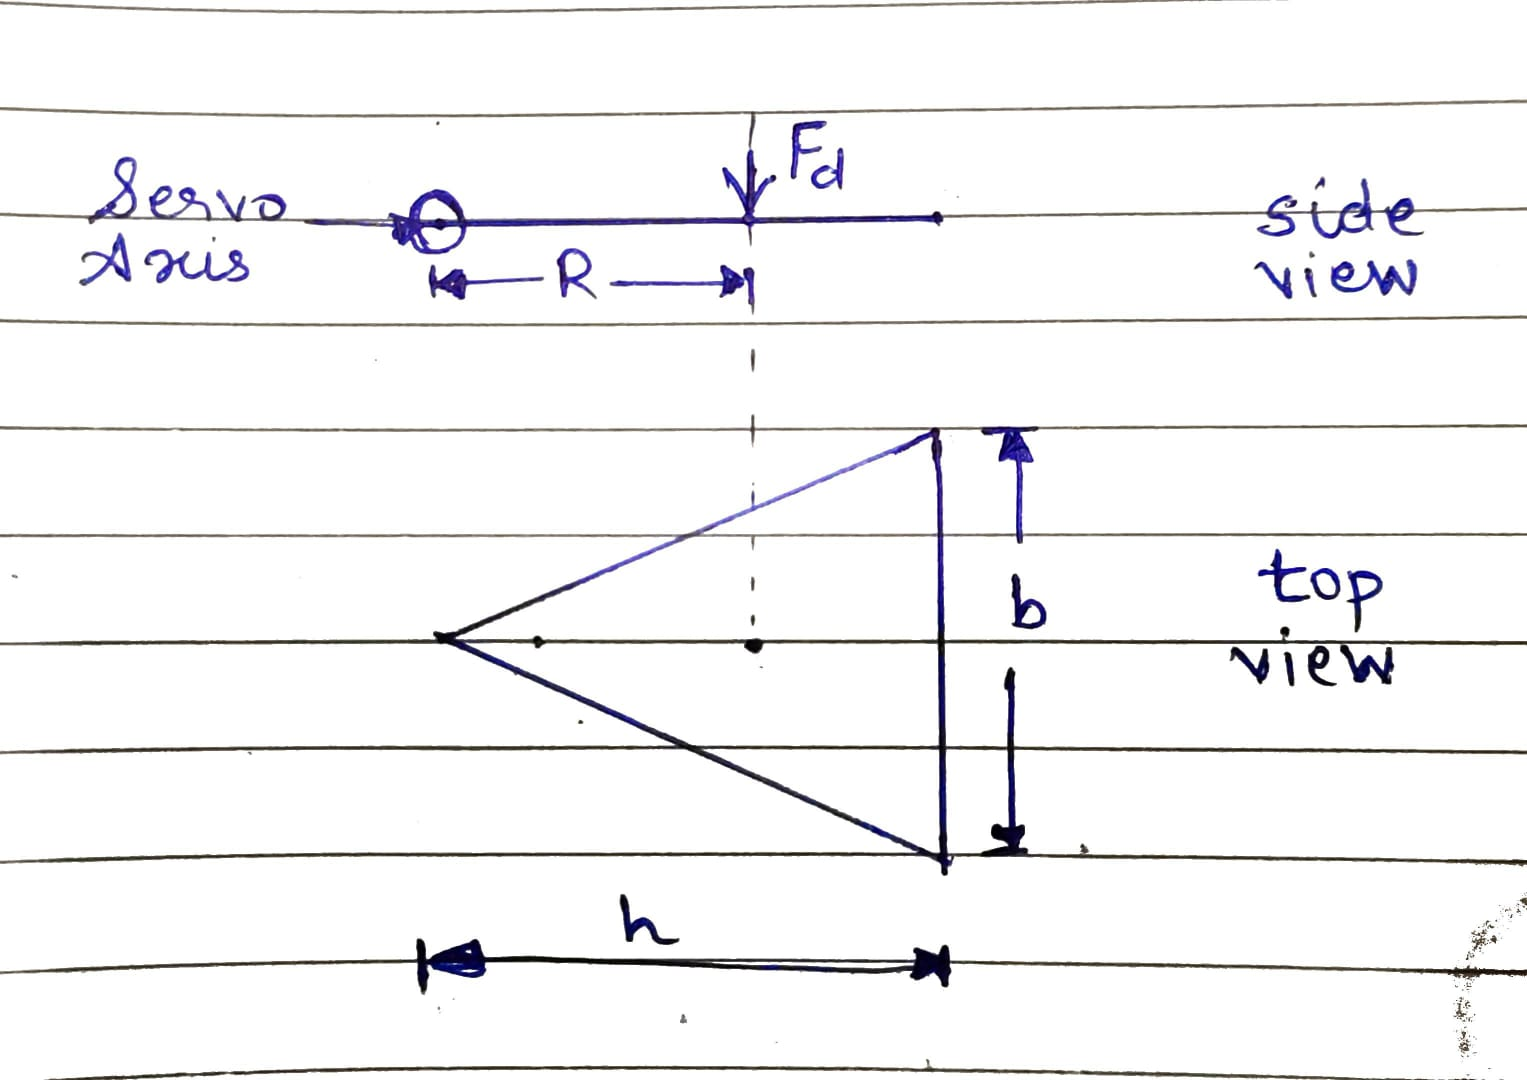 Fd
Servo
Axis
R
side
view
b
top
view
h